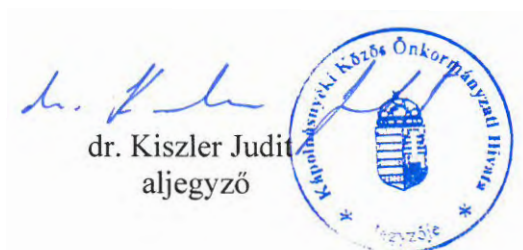 dr. Kiszler Judit
aljegyző
Kápolnásnyéki Közös Önkormányzati Hivatal
* Jegyzője *